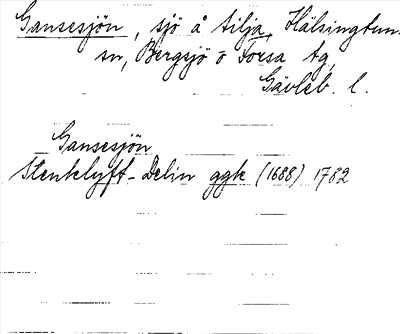 Gansesjön, sjö å Lilja, Hälsingtuna
sn, Bergsjö o Forsa tg,
Gävleb. l.
Gansesjön
Stenklyft-Delin ggk (1688) 1782